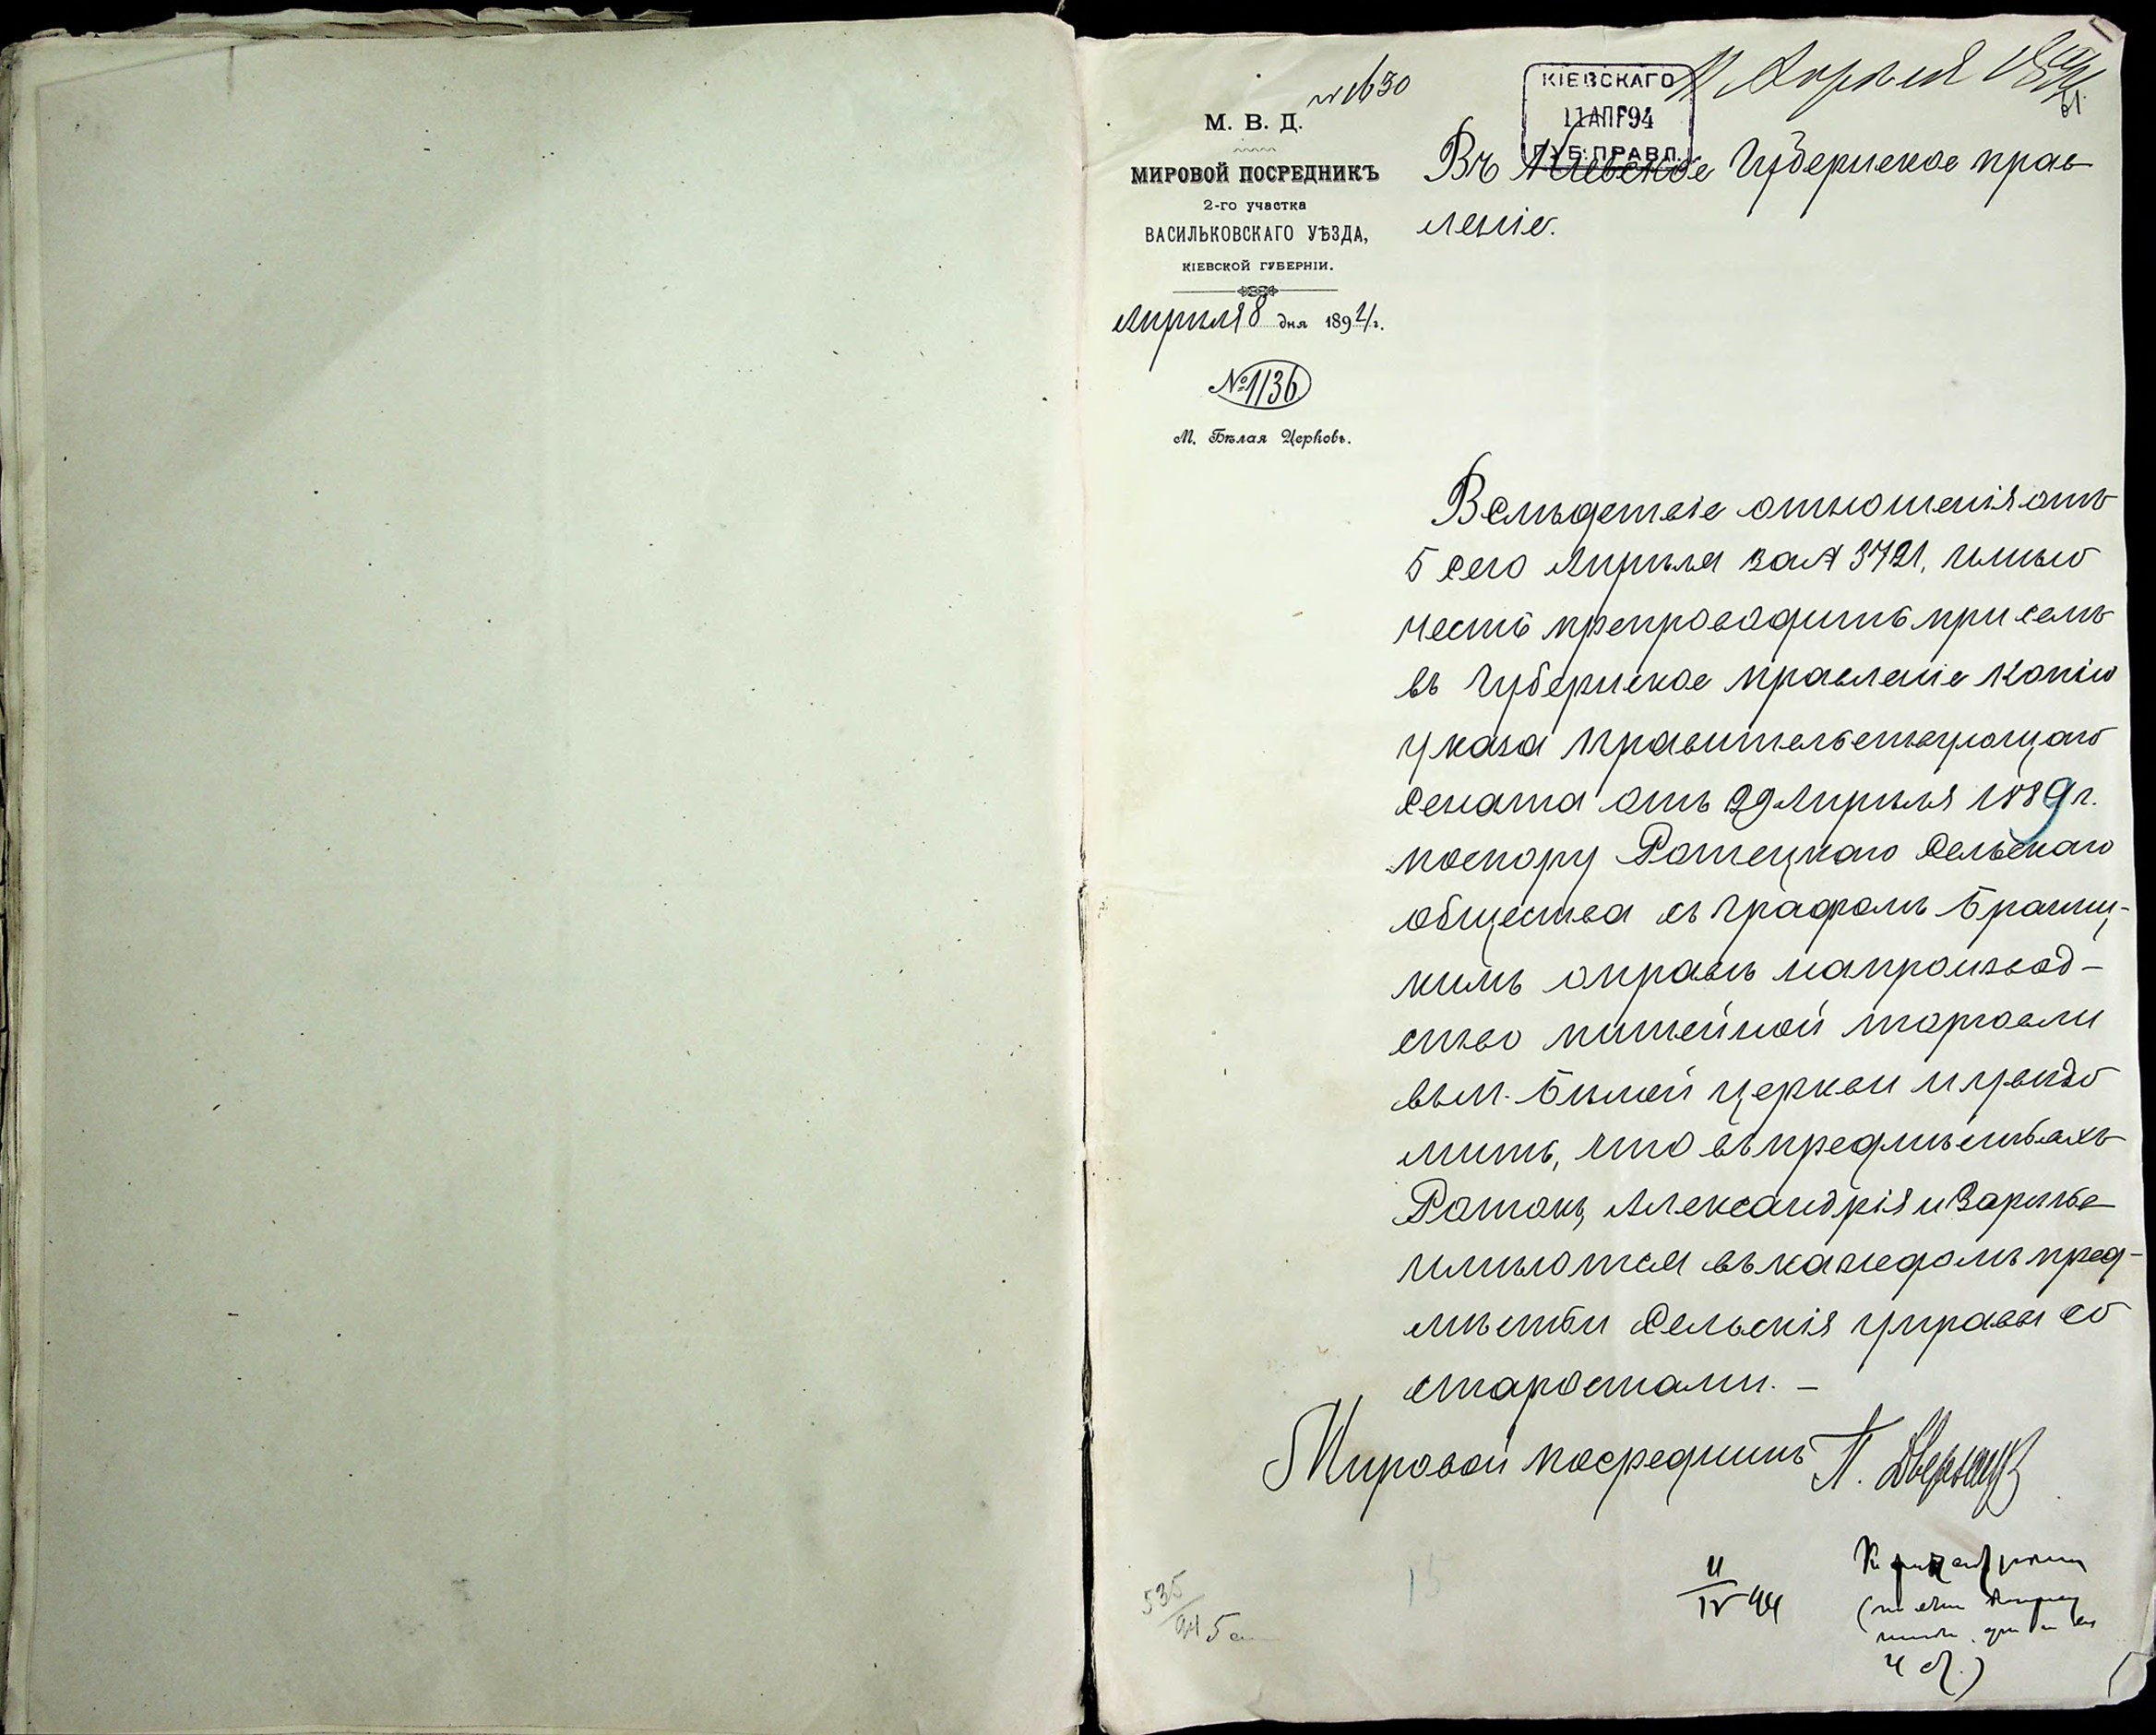 № 1630
М. В. Д.
МИРОВОЙ ПОСРЕДНИКЪ
2-го участка
ВАСИЛЬКОВСКАГО УѢЗДА,
КІЕВСКОЙ ГУБЕРНІИ.
Апрѣля 8 дня 1894 г.
№ 1136
М. Бѣлая Церковь.
КІЕВСКАГО
11 АПР 94
ГУБ. ПРАВЛ.
11 Апрѣля
Въ Кіевское Губернское прав
леніе.
Вслѣдствіе отношенія отъ
5 сего Апрѣля за № 3721, имѣю
честь препроводить при семъ
въ Губернское Правленіе копію
указа Правительствующаго
Сената отъ 29 Апрѣля 1889 г.
по спору Ротецкаго Сельскаго
общества съ графомъ Браниц-
кимъ о правѣ на производ-
ство питейной торговли
въ м. Бѣлой Церкви и увѣдо
мить, что въ предмѣстьяхъ
Ротокъ, Александрія и Зарѣчье
имѣются въ каждомъ пред-
мѣстьи Сельскія управы со
старостами. –
Мировой посредникъ П.
11/IV 94
535/94 5
15